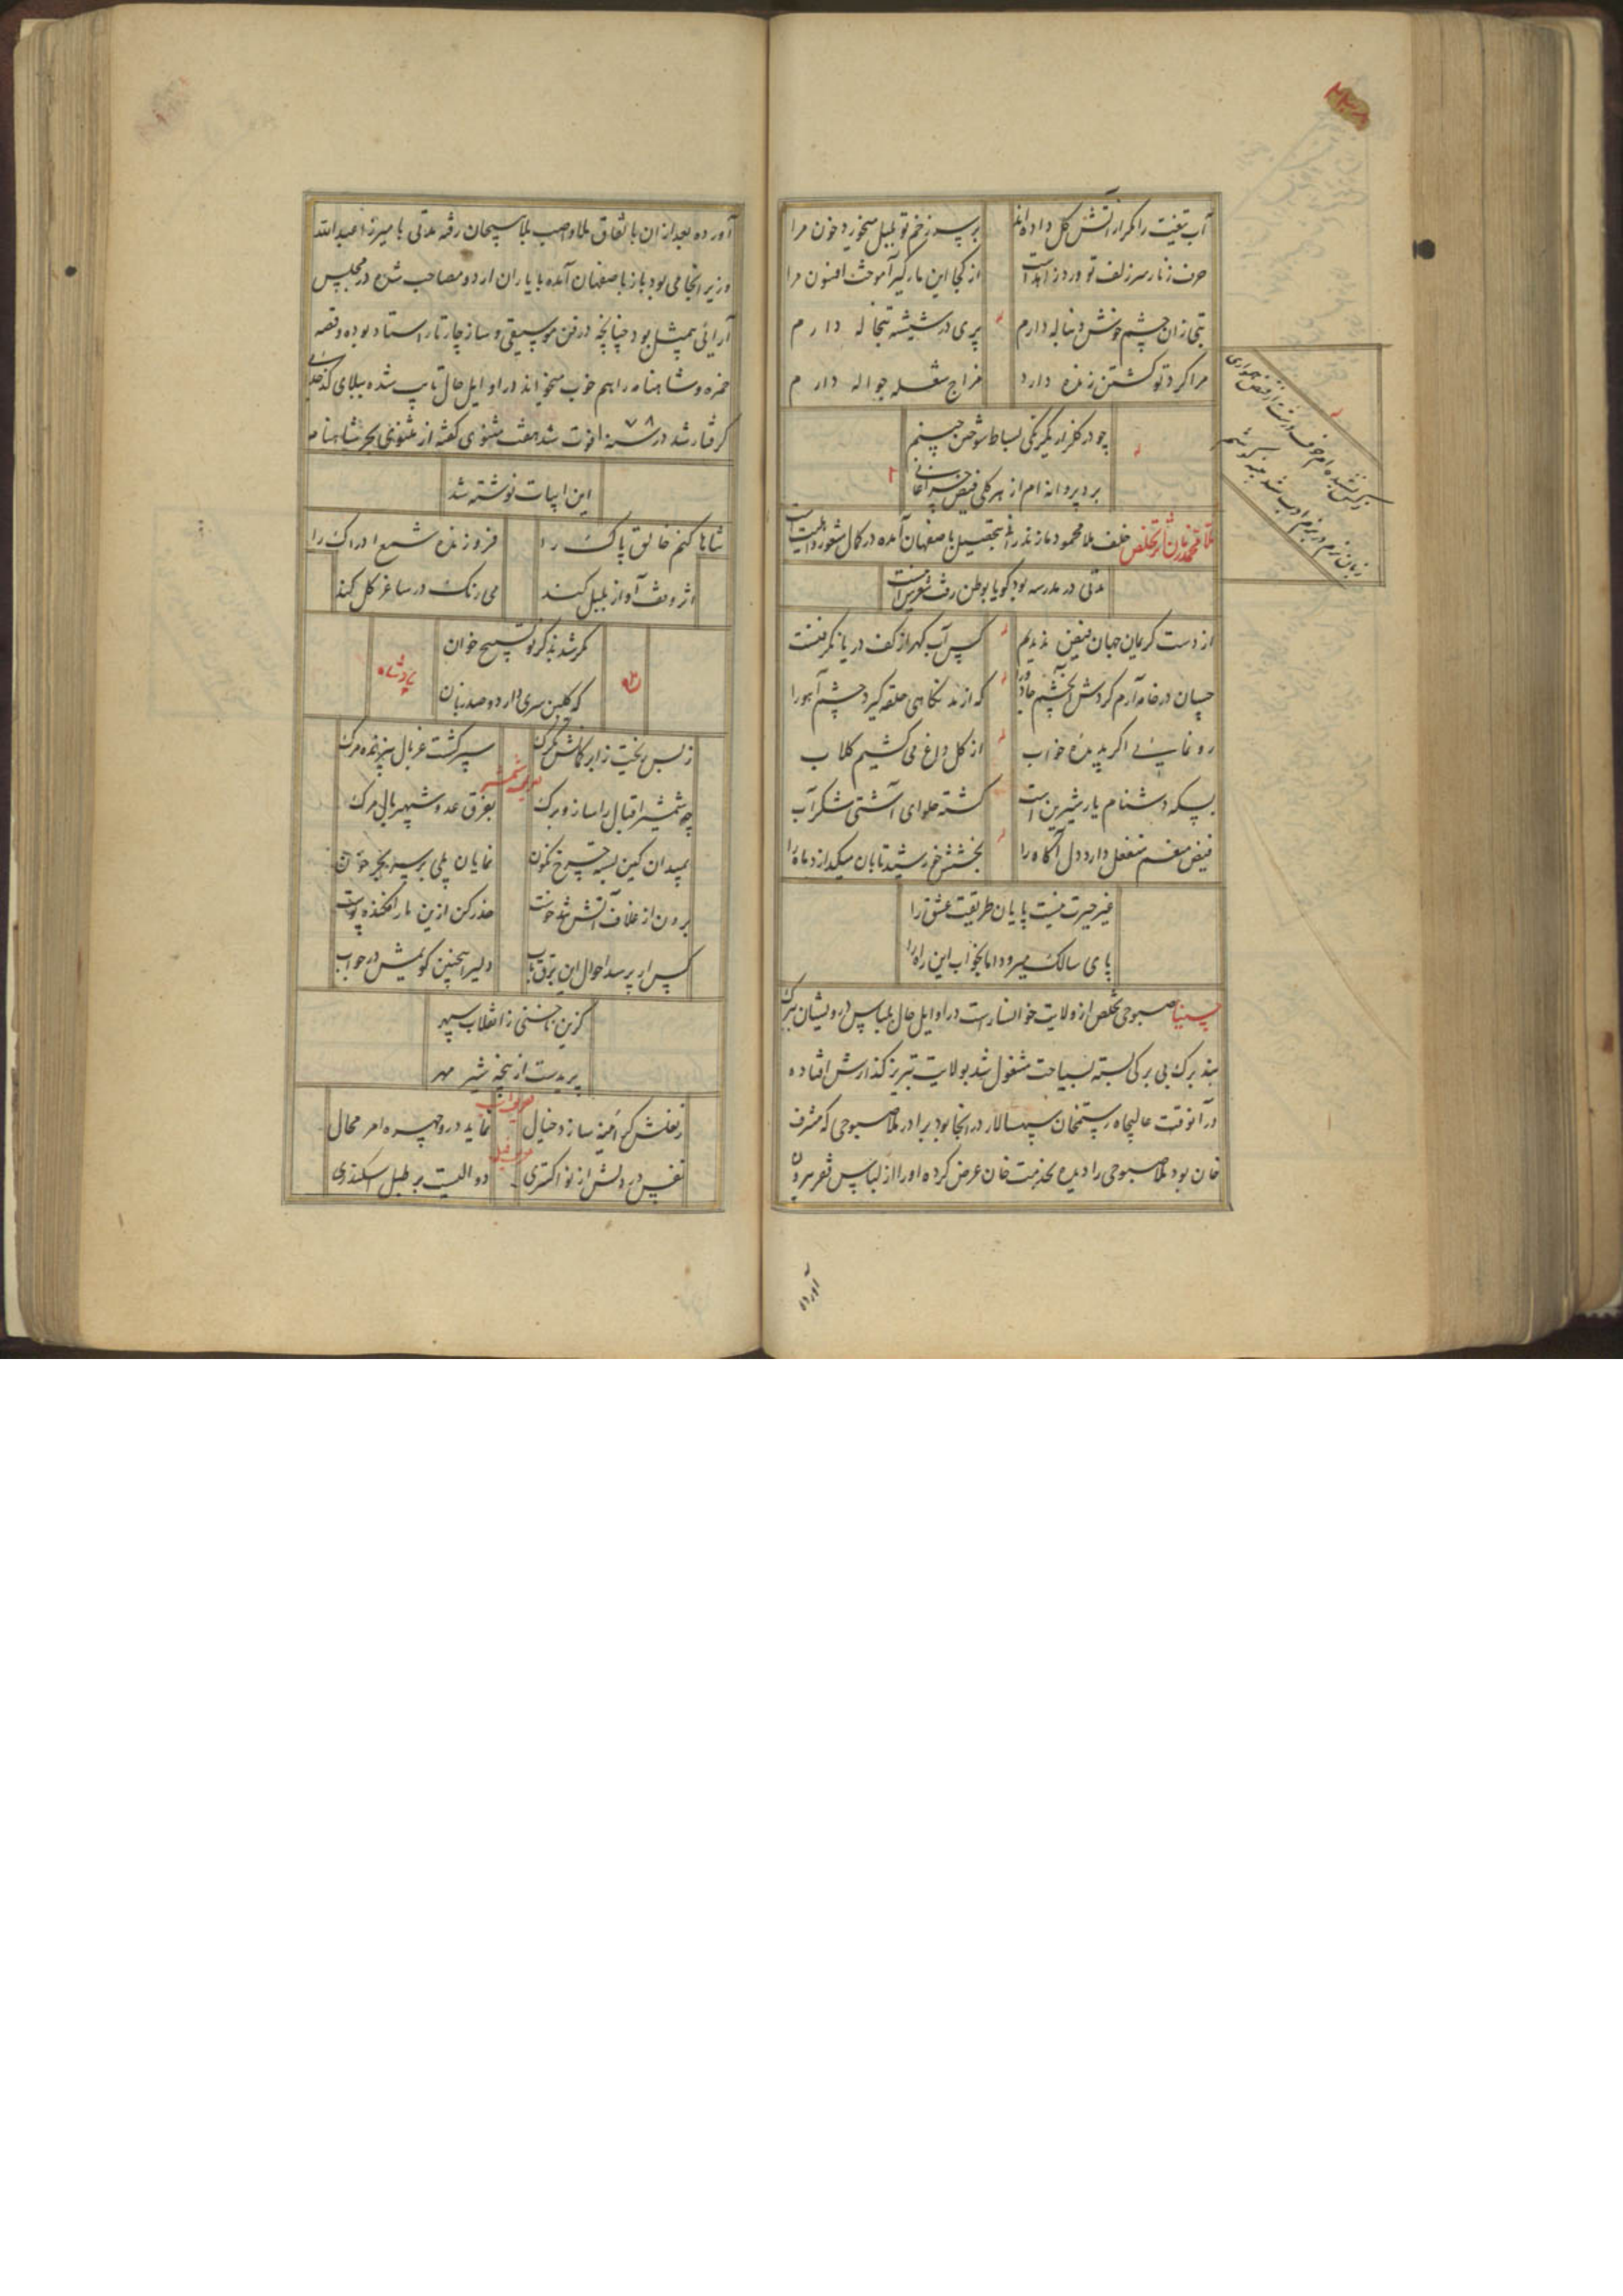 آب تیغت را مگر از آتش گل داده‌اند بر سر زخم تو بلبل میخورد خون مرا
حرف زنار سر زلف تو ورد زاهد است از کجا این مارگیر آموخت افسون مرا
تبی زان چشم خوش دنباله دارم پری در شیشه تبخاله دارم
مرا گرد تو گشتن زنده دارد مزاج شعله جواله دارم
چو در گلزار یکرنگی بساط شوق می‌چینم
برد پروانه ام از هر گلی فیض چراغانی
ملا محمد زمان تخلص خلف ملا محمود مازندرانی بتحصیل باصفهان آمده در کمال شعور و اهلیت است
مدتی در مدرسه بود گویا بوطن رفت شعرش اینست
از دست کریمان جهان فیض ندیدیم کس آب گهر از کف دریا نگرفتست
چسان در خامه آرم گردش آن چشم جادو را که از مد نگاهی حلقه گیرد چشم آهو را
رو نمایی اگر بدیده خواب از گل داغ می کشیم گلاب
بسکه دشنام یار شیرین است گشته حلوای آشتی شکرآب
فیض منعم منفعل دارد دل آگاه را بخشش خورشید تابان میگدازد ماه را
غیر حیرت نیست پایان طریقت عشق را
پای سالک میرود اما بخواب این راه را
صبوحی تخلص از ولایت خوانسار است در اوایل حال بلباس درویشان
برگ بی برگی بسته بسیاحت مشغول شد بولایت تبریز گذارش افتاده
در آنوقت عالیجاه رستمخان سپهسالار در آنجا بود برادر ملا صبوحی که مشرف
خان بود ملا صبوحی را دیده بخدمت خان عرض کرده او را از لباس فقر بیرون
آورده
آورده بعد از آن باتفاق ملا واصب بلاسیجان رفته مدتی با میرزا عبدالله
وزیر آنجا می بود باز باصفهان آمده با یاران اردو مصاحب شده در مجلس
آرائی بیمثل بود چنانچه در فن موسیقی و ساز چارتار استاد بوده و قصه
حمزه و شاهنامه را هم خوب میخواند در اوایل حال تایب شده ببلای کدخدایی
گرفتار شد در سنه ۱۰۷۸ فوت شد هفت مثنوی گفته از مثنوی بحر شاهنامه
این ابیات نوشته شد
ثناها کنم خالق پاک را فروزنده شمع ادراک را
اثر وقف آواز بلبل کند می رنگ در ساغر گل کند
مگر شد بذکر تو تسبیح خوان
که گلبن سری دارد و صد زبان
پادشاه
ز بس ریخت ز ابر کمانش تگرگ سپر گشت غربال پیزنده مرگ
تعریف شمشیر
چو شمشیر اقبال را ساز و برگ بفرق عدو شهپر بال مرگ
بمیدان کین بسته چرخ نگون نمایان پلی بر سر بحر خون
برون از غلاف آتش تند خوست حذر کن ازین مار افکنده پوست
کس ار پرسد احوال این برق تاب دلیر اینچنین گویمش در جواب
گزین ناخنی ز انقلاب سپهر
پریدست از پنجه شیر مهر
تعریف اسب
ز نعلش گر آئینه سازد خیال نماید درو چهره امر محال
تعریف فیل
نفس در دلش از نوا گستری دوالیست بر طبل اسکندری